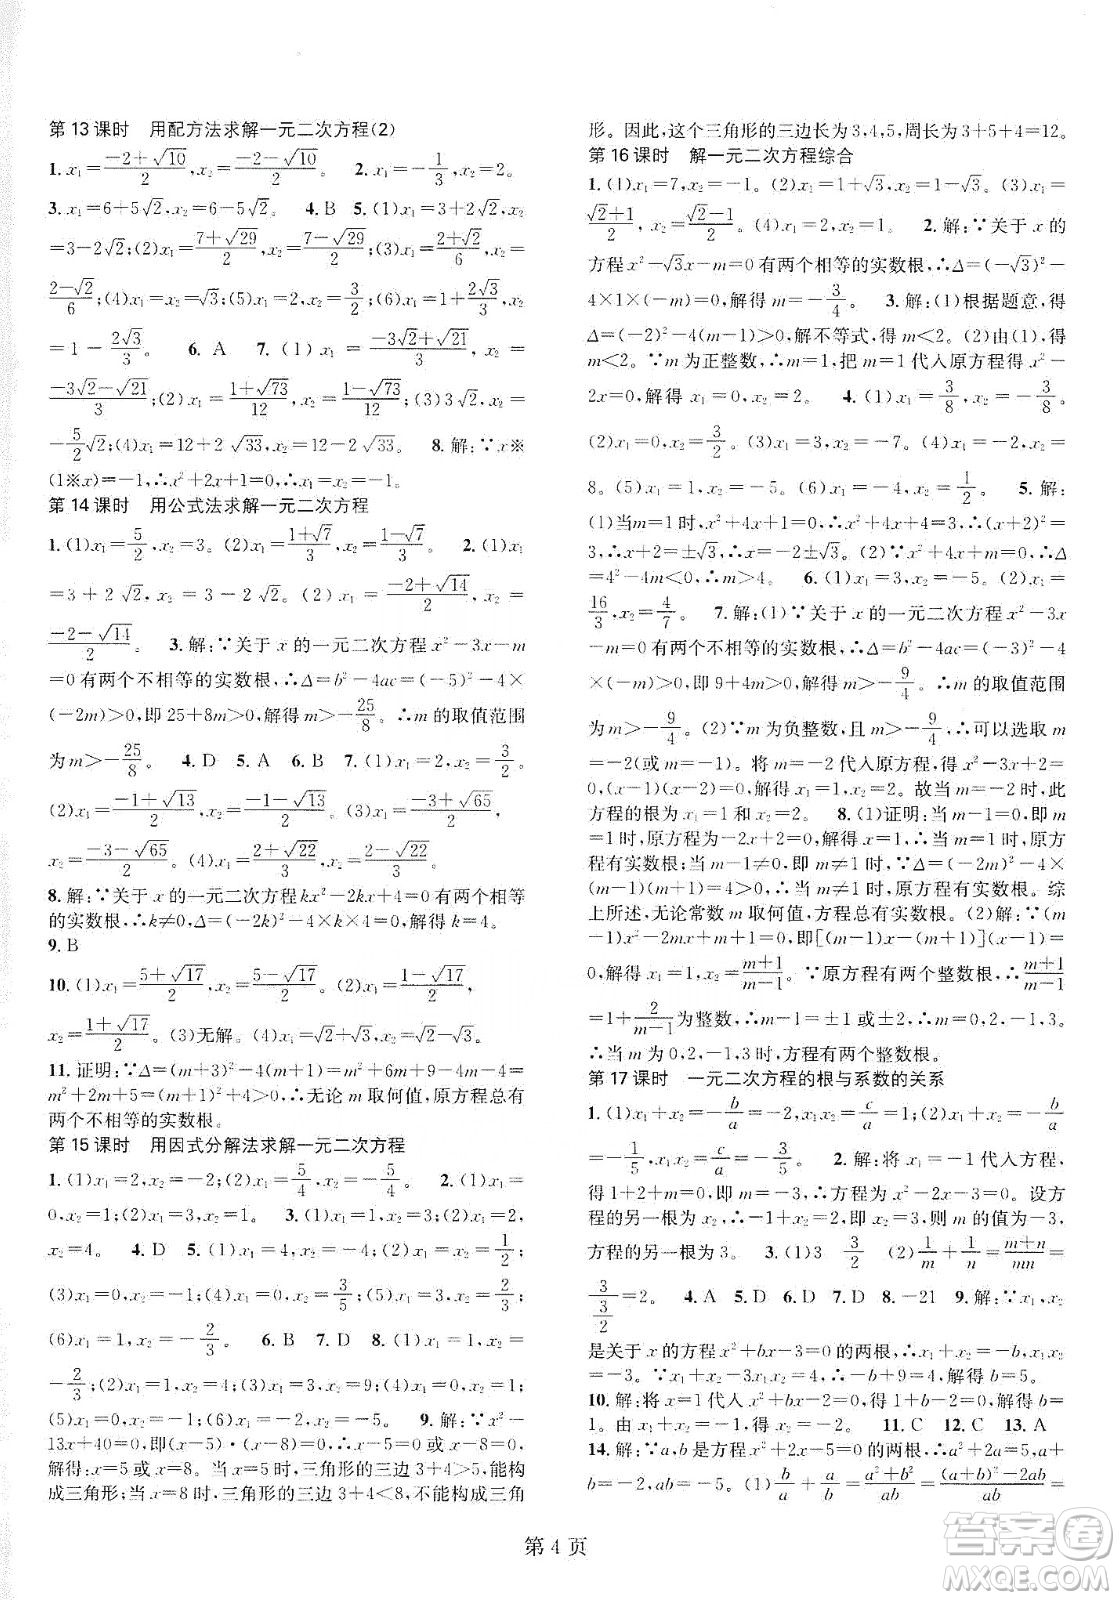 第13课时　用配方法求解一元二次方程(2)
1. x₁=(-2+√10)/2, x₂=(-2-√10)/2。　2. x₁=-1/3, x₂=2。
3. x₁=6+5√2, x₂=6-5√2。　4. B　5. (1)x₁=3+2√2, x₂
=3-2√2;(2)x₁=(7+√29)/2, x₂=(7-√29)/2;(3)x₁=(2+√2)/6, x₂=
(2-√2)/6;(4)x₁=x₂=√3;(5)x₁=2, x₂=3/2;(6)x₁=1+2√3/3, x₂
=1-2√3/3。　6. A　7. (1)x₁=(-3√2+√21)/3, x₂=
(-3√2-√21)/3;(2)x₁=(1+√73)/12, x₂=(1-√73)/12;(3)3√2,
-5/2√2;(4)x₁=12+2√33, x₂=12-2√33。　8. 解:∵x※
(1※x)=-1,∴x²+2x+1=0,∴x₁=x₂=-1。
第14课时　用公式法求解一元二次方程
1. (1)x₁=5/2, x₂=3。(2)x₁=(1+√7)/3, x₂=(1-√7)/3。　2. (1)x₁
=3+2√2, x₂=3-2√2。(2)x₁=(-2+√14)/2, x₂=
(-2-√14)/2。　3. 解:∵关于x的一元二次方程x²-3x-m
=0有两个不相等的实数根,∴Δ=b²-4ac=(-5)²-4×
(-2m)>0,即25+8m>0,解得m>-25/8。∴m的取值范围
为m>-25/8。　4. D　5. A　6. B　7. (1)x₁=-2, x₂=3/2。
(2)x₁=(-1+√13)/2, x₂=(-1-√13)/2。(3)x₁=(-3+√65)/2,
x₂=(-3-√65)/2。(4)x₁=(2+√22)/3, x₂=(2-√22)/3。
8. 解:∵关于x的一元二次方程kx²-2kx+4=0有两个相等
的实数根,∴k≠0,Δ=(-2k)²-4×k×4=0,解得k=4。
9. B
10. (1)x₁=(5+√17)/2, x₂=(5-√17)/2。(2)x₁=(1-√17)/2,
x₂=(1+√17)/2。(3)无解。(4)x₁=√2+√3, x₂=√2-√3。
11. 证明:∵Δ=(m+3)²-4(m+1)=m²+6m+9-4m-4=
m²+2m+5=(m+1)²+4>0,∴无论m取何值,方程总有
两个不相等的实数根。
第15课时　用因式分解法求解一元二次方程
1. (1)x₁=2, x₂=-2;(2)x₁=5/4, x₂=-5/4。　2. (1)x₁=
0, x₂=-3;(2)x₁=x₂=2。　3. (1)x₁=1, x₂=3;(2)x₁=2,
x₂=4。　4. D　5. (1)x₁=4, x₂=-4;(2)x₁=x₂=1/2;
(3)x₁=0, x₂=-1;(4)x₁=0, x₂=3/5;(5)x₁=1, x₂=-5;
(6)x₁=1, x₂=-2/3。　6. B　7. D　8. (1)x₁=1, x₂=
-2/3;(2)x₁=2, x₂=4;(3)x₁=1, x₂=-9;(4)x₁=x₂=5;
(5)x₁=0, x₂=2;(6)x₁=2, x₂=-5。　9. 解:∵x²-
13x+40=0,即(x-5)·(x-8)=0,∴x-5=0或x-8=0,
解得:x=5或x=8。当x=5时,三角形的三边3+4>5,能构
成三角形;当x=8时,三角形的三边3+4<8,不能构成三角
形。因此,这个三角形的三边长为3,4,5,周长为3+5+4=12。
第16课时　解一元二次方程综合
1. (1)x₁=7, x₂=-1。(2)x₁=1+√3, x₂=1-√3。(3)x₁=
(√2+1)/2, x₂=(√2-1)/2。(4)x₁=2, x₂=1。　2. 解:∵关于x的
方程x²-√3x-m=0有两个相等的实数根,∴Δ=(-√3)²-
4×1×(-m)=0,解得m=-3/4。　3. 解:(1)根据题意,得
Δ=(-2)²-4(m-1)>0,解不等式,得m<2。(2)由(1),得
m<2。∵m为正整数,∴m=1,把m=1代入原方程得x²-
2x=0,解得x₁=0, x₂=2。　4. (1)x₁=3/8, x₂=-3/8。
(2)x₁=0, x₂=3/2。(3)x₁=3, x₂=-7。(4)x₁=2, x₂=
8。(5)x₁=2, x₂=-5。(6)x₁=-4, x₂=1/2。　5. 解:
(1)当m=1时, x²+4x+1=0,∴x²+4x+4=3,∴(x+2)²=
3,∴x+2=±√3,∴x=-2±√3。(2)∵x²+4x+m=0,∴Δ
=4²-4m<0,∴m>4。　6. (1)x₁=2, x₂=-5。(2)x₁=
16/3, x₂=4/7。　7. 解:(1)∵关于x的一元二次方程x²-3x
-m=0有两个不相等的实数根,∴Δ=b²-4ac=(-3)²-4
×(-m)>0,即9+4m>0,解得m>-9/4。∴m的取值范围
为m>-9/4。(2)∵m为负整数,且m>-9/4,∴可以选取m
=-2(或m=-1)。将m=-2代入原方程,得x²-3x+2=
0,即(x-1)(x-2)=0,解得x₁=1, x₂=2。故当m=-2时,此
方程的根为x₁=1和x₂=2。　8. (1)证明:当m-1=0,即m
=1时,原方程为-2x+2=0,解得x=1,故当m=1时,原方
程有实数根;当m-1≠0,即m≠1时,∵Δ=(-2m)²-4×
(m-1)(m+1)=4>0,∴当m≠1时,原方程有实数根。综
上所述,无论常数m取何值,原方程总有实数根。(2)解:∵(m
-1)x²-2mx+m+1=0,即[(m-1)x-(m+1)](x-1)=
0,解得x₁=1, x₂=(m+1)/(m-1)。∵原方程有两个整数根,∴(m+1)/(m-1)
=1+2/(m-1)为整数,∴m-1=±1或±2,∴m=0,2,-1,3。
∴当m为0,2,-1,3时,方程有两个整数根。
第17课时　一元二次方程的根与系数的关系
1. (1)x₁+x₂=-b/a, x₁x₂=c/a。(2)x₁+x₂=-b/a=
-1/5, x₁x₂=c/a=-3/5。　2. 解:将x₁=-1代入方程,
得1+2+m=0,∴m=-3,∴方程为x²-2x-3=0。设方
程的另一根为x₂,∴-1+x₂=2,∴x₂=3,则m的值为-3,
方程的另一根为3。　3. (1)3　3/2　(2)1/m+1/n=(m+n)/mn=
3/(3/2)=2。　4. A　5. D　6. D　7. B　8. -21　9. 解:∵x₁, x₂
是关于x的方程x²+bx-3=0的两根,∴x₁+x₂=-b, x₁x₂
=-3。∵x₁+x₂-3x₁x₂=5,∴-b+9=4,解得b=4。
10. 解:将x=1代入x²+bx-2=0,得1+b-2=0,解得b=
1。由x₁·x₂=-2,得x₂=-2。　11. C　12. C　13. A
14. 解:∵a,b是方程x²+2x-5=0的两根,∴a²+2a=5,a
+b=-2,ab=-5。(1)b/a+a/b=(a²+b²)/ab=((a+b)²-2ab)/ab=
第4页
答案卷
MXQE.COM